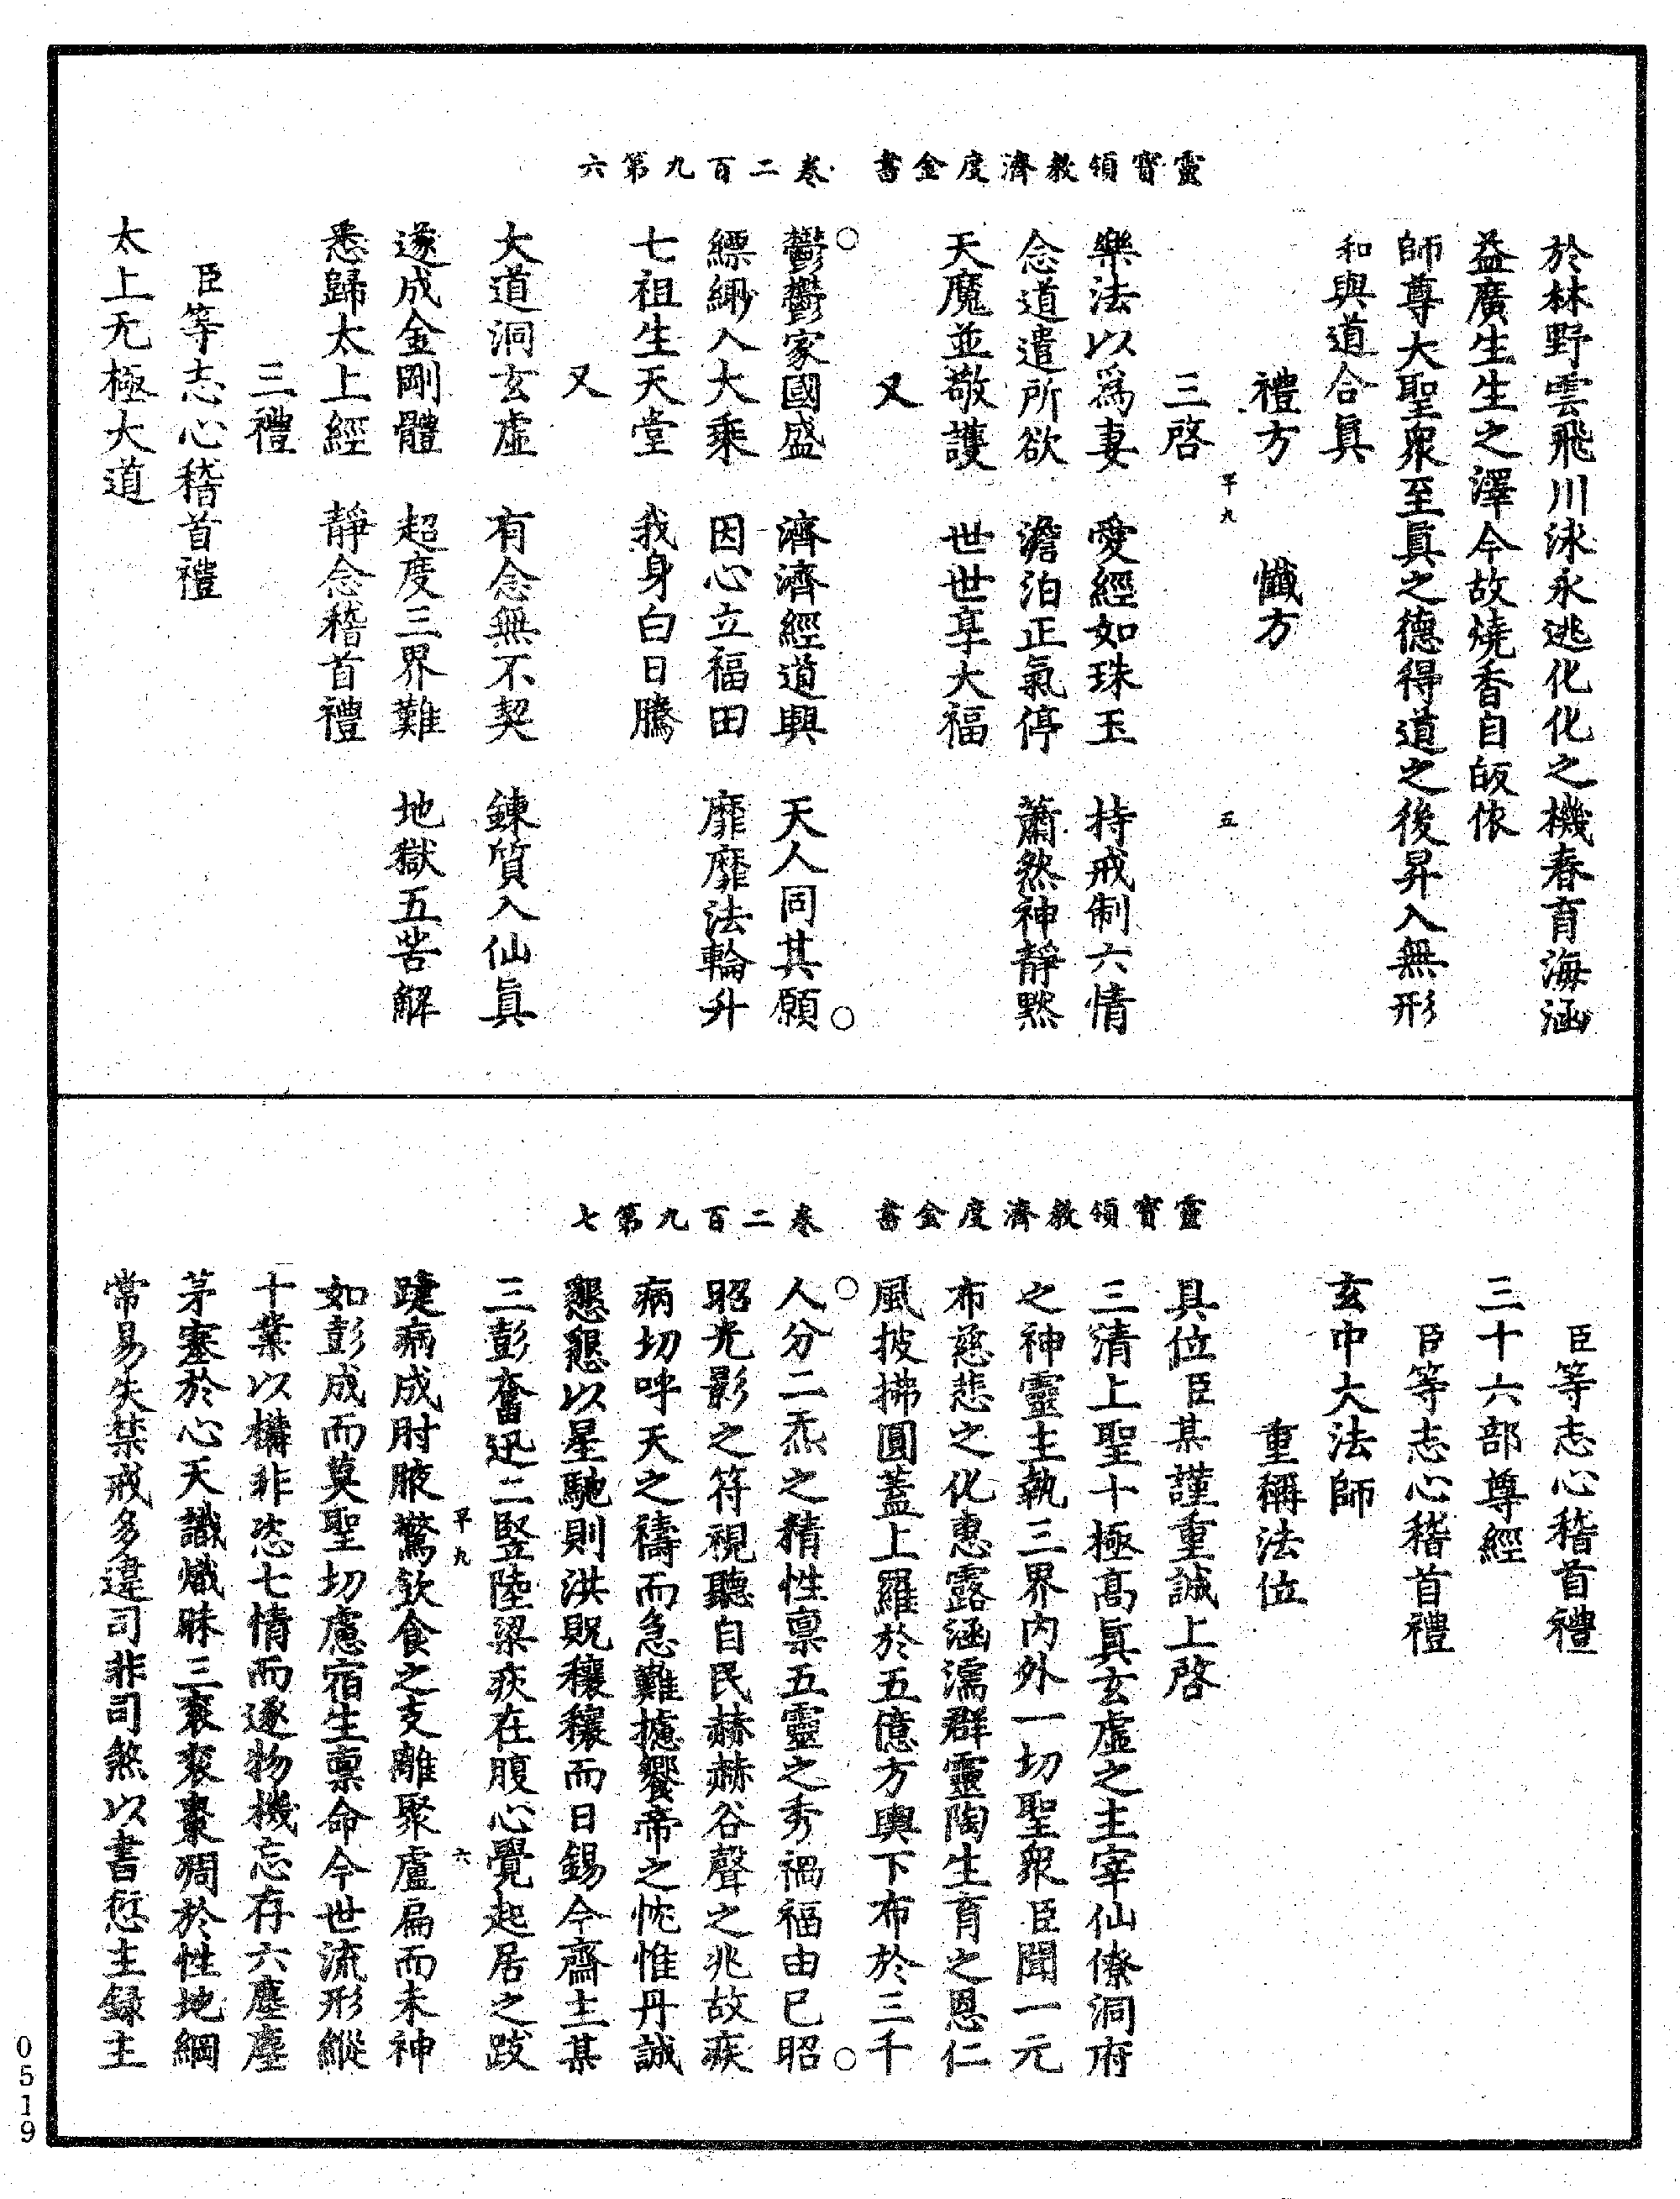 靈寳領教濟度金書　卷二百九第六
於林野雲飛川泳永逃化化之機春育海涵
益廣生生之澤今故燒香自皈依
師尊大聖衆至眞之德得道之後昇入無形
和與道合眞
禮方　懺方
三啓
樂法以爲妻　愛經如珠玉　持戒制六情
念道遣所欲　澹泊正氣停　蕭然神靜黙
天魔並敬護　世世享大福
又
鬱鬱家國盛　濟濟經道興　天人同其願
縹緲入大乘　因心立福田　靡靡法輪升
七祖生天堂　我身白日騰
又
大道洞玄虛　有念無不契　錬質入仙眞
遂成金剛體　超度三界難　地獄五苦解
悉歸太上經　靜念稽首禮
三禮
臣等志心稽首禮
太上无極大道
靈寳領教濟度金書　卷二百九第七
臣等志心稽首禮
三十六部尊經
臣等志心稽首禮
玄中大法師
重稱法位
具位臣某謹重誠上啓
三清上聖十極高眞玄虛之主宰仙僚洞府
之神靈主執三界内外一切聖衆臣聞一元
布慈悲之化惠露涵濡群靈陶生育之恩仁
風披拂圓蓋上羅於五億方輿下布於三千
人分二炁之精性禀五靈之秀禍福由已昭
昭光影之符視聽自民赫赫谷聲之兆故疾
病切呼天之禱而急難攄饗帝之忱惟丹誠
懇懇以星馳則洪貺穰穰而日錫今齋主某
三彭奮迅二竪陸梁疾在腹心覺起居之跋
疐病成肘腋驚飲食之支離聚盧扁而未神
如彭成而莫聖切慮宿生禀命今世流形縱
十業以構非恣七情而逐物機忘存六塵塵
茅塞於心天識熾昧三衮衮棗㓮於性地綱
常易失禁戒多違司非司煞以書愆主録主
0519